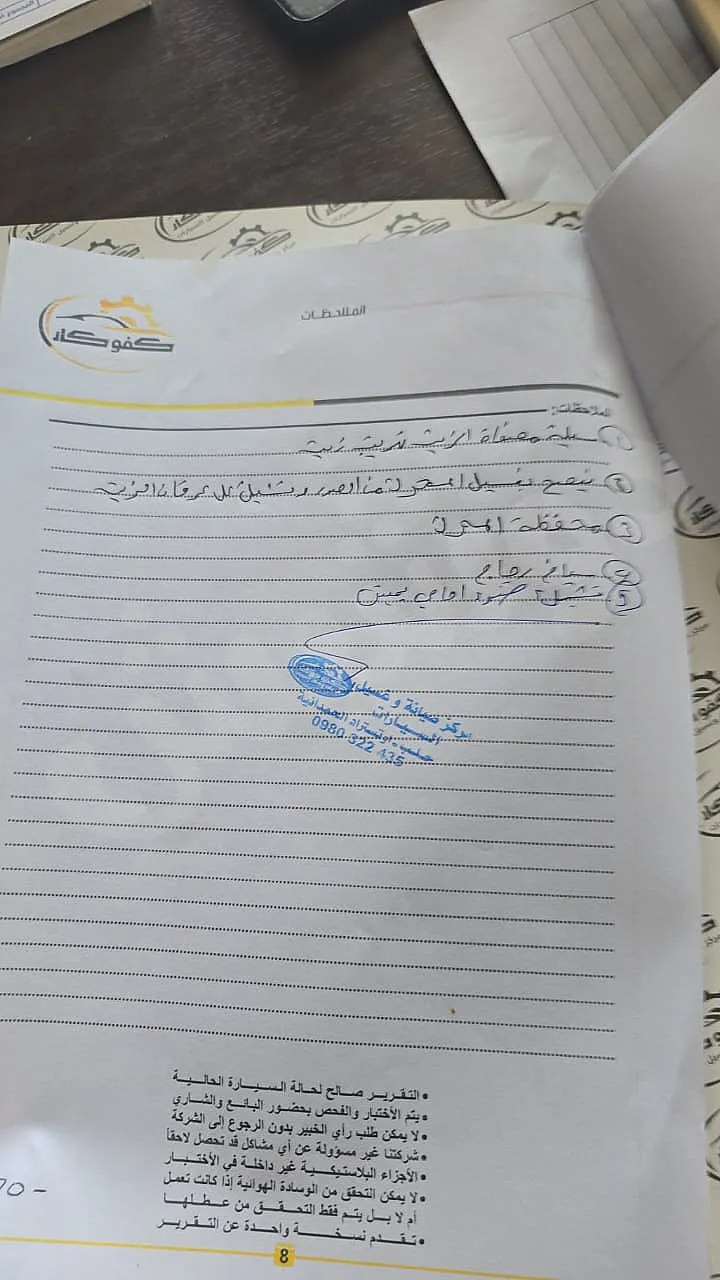 كفو كار
الملاحظات
الملاحظات:
1 سيلية مصفاة الزيت تهريب زيت
2 ينصح بغسيل المحرك من الصدر و تشييل كل عرقان الزيت
3 محفظة المحرك
4 زجاج
5 امامي يمين
مركز صيانة و غسيل
السيارات
حلب - اوتستراد الحمدانية
0980 322 435
• التقرير صالح لحالة السيارة الحالية
• يتم الأختبار والفحص بحضور البائع والشاري
• لا يمكن طلب رأي الخبير بدون الرجوع إلى الشركة
• شركتنا غير مسؤولة عن أي مشاكل قد تحصل لاحقاً
• الأجزاء البلاستيكية غير داخلة في الأختبار
• لا يمكن التحقق من الوسادة الهوائية إذا كانت تعمل
أم لا بل يتم فقط التحقق من عطلها
• تقدم نسخة واحدة عن التقرير
8